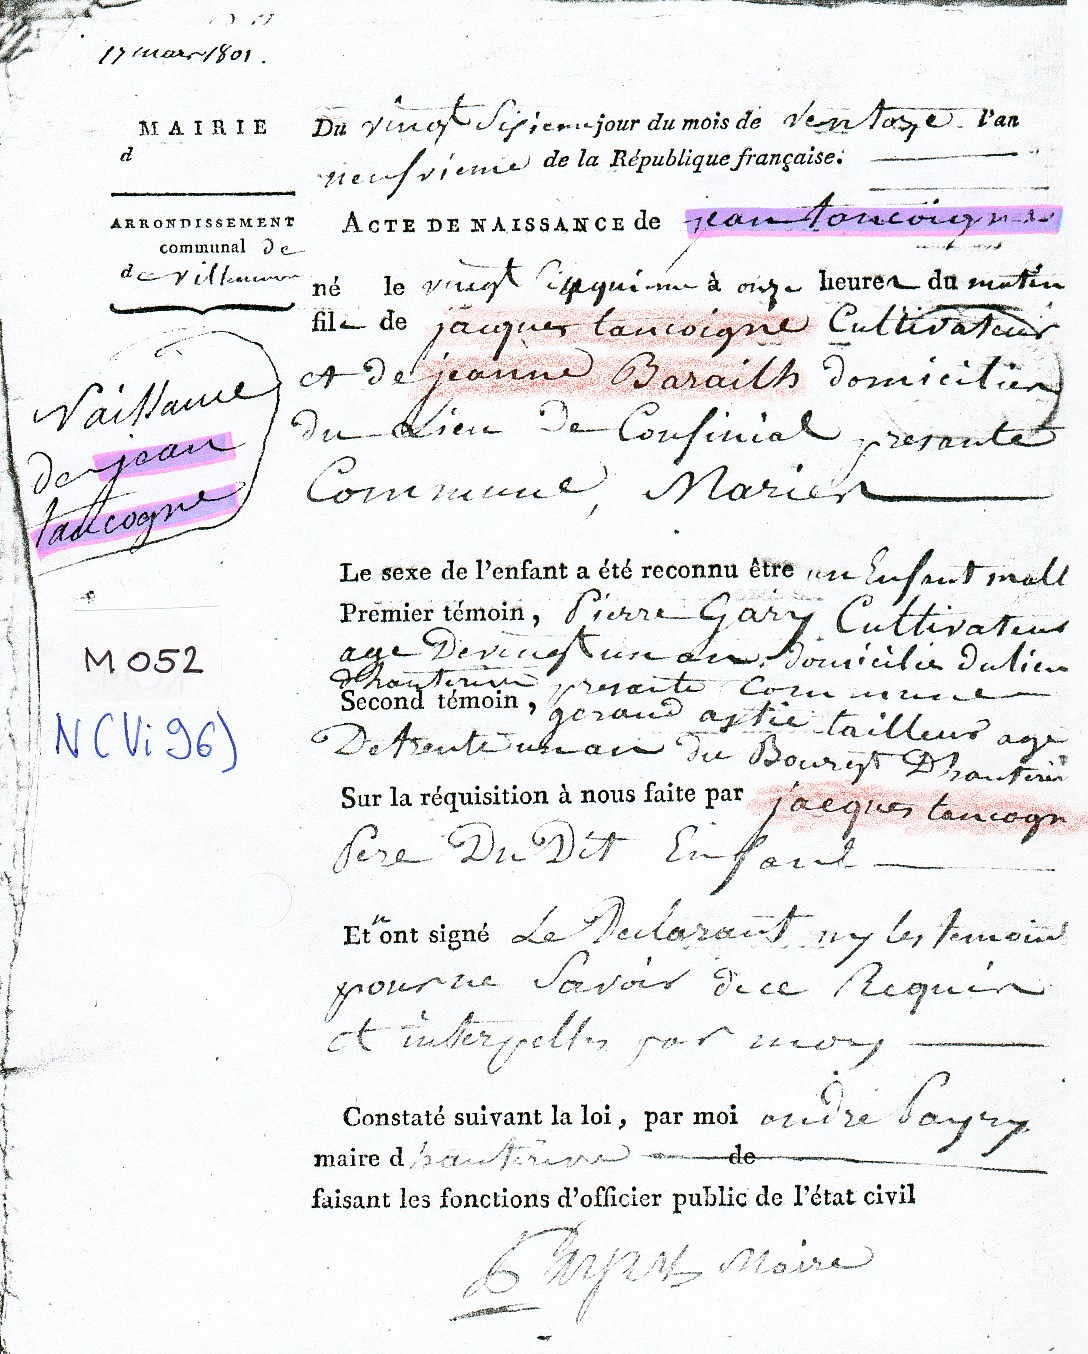 17 mars 1801.
MAIRIE
d
ARRONDISSEMENT
communal de
de
Naissance
de jean
tancogne
M052
N (Vi 96)
Du vingt sixieme jour du mois de ventoze l'an
neufvieme de la République française.
ACTE DE NAISSANCE de jean tancoigne
né le vingt à onze heures du matin
fils de jacques tancoigne Cultivateur
et de jeanne Barailh domicilies
du Lieu de presante
Commune, Mariés
Le sexe de l'enfant a été reconnu être un Enfant mall
Premier témoin, Pierre Gary Cultivateur
age De vingt un an domicilie du lieu
d'hauterive presante Commune
Second témoin, gerand astie tailleur age
De trente un an du Bourgt D'hauterive
Sur la réquisition à nous faite par jacques tancogn
Pere Du Dit Enfant
Et n'ont signé Le Declarant ny les temoins
pour ne savoir de ce Requis
et interpelles par moy
Constaté suivant la loi, par moi andre Payry
maire d hauterive de
faisant les fonctions d'officier public de l'état civil
Maire